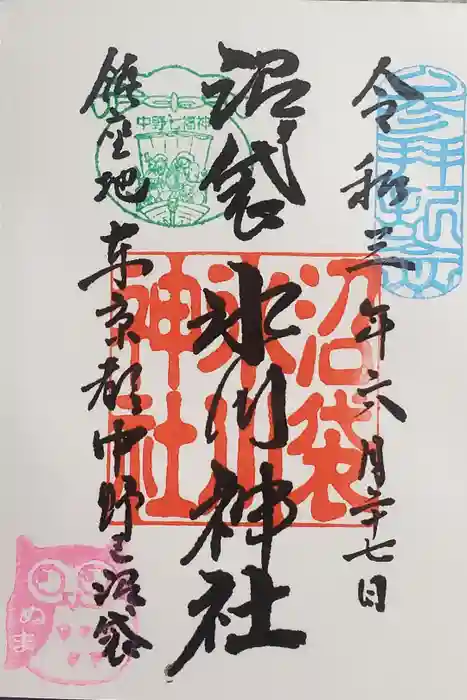 令和三年六月二十七日
参拝祈念
沼袋氷川神社
沼袋氷川神社
中野七福神
鎮座地 東京都中野区沼袋
ぬま